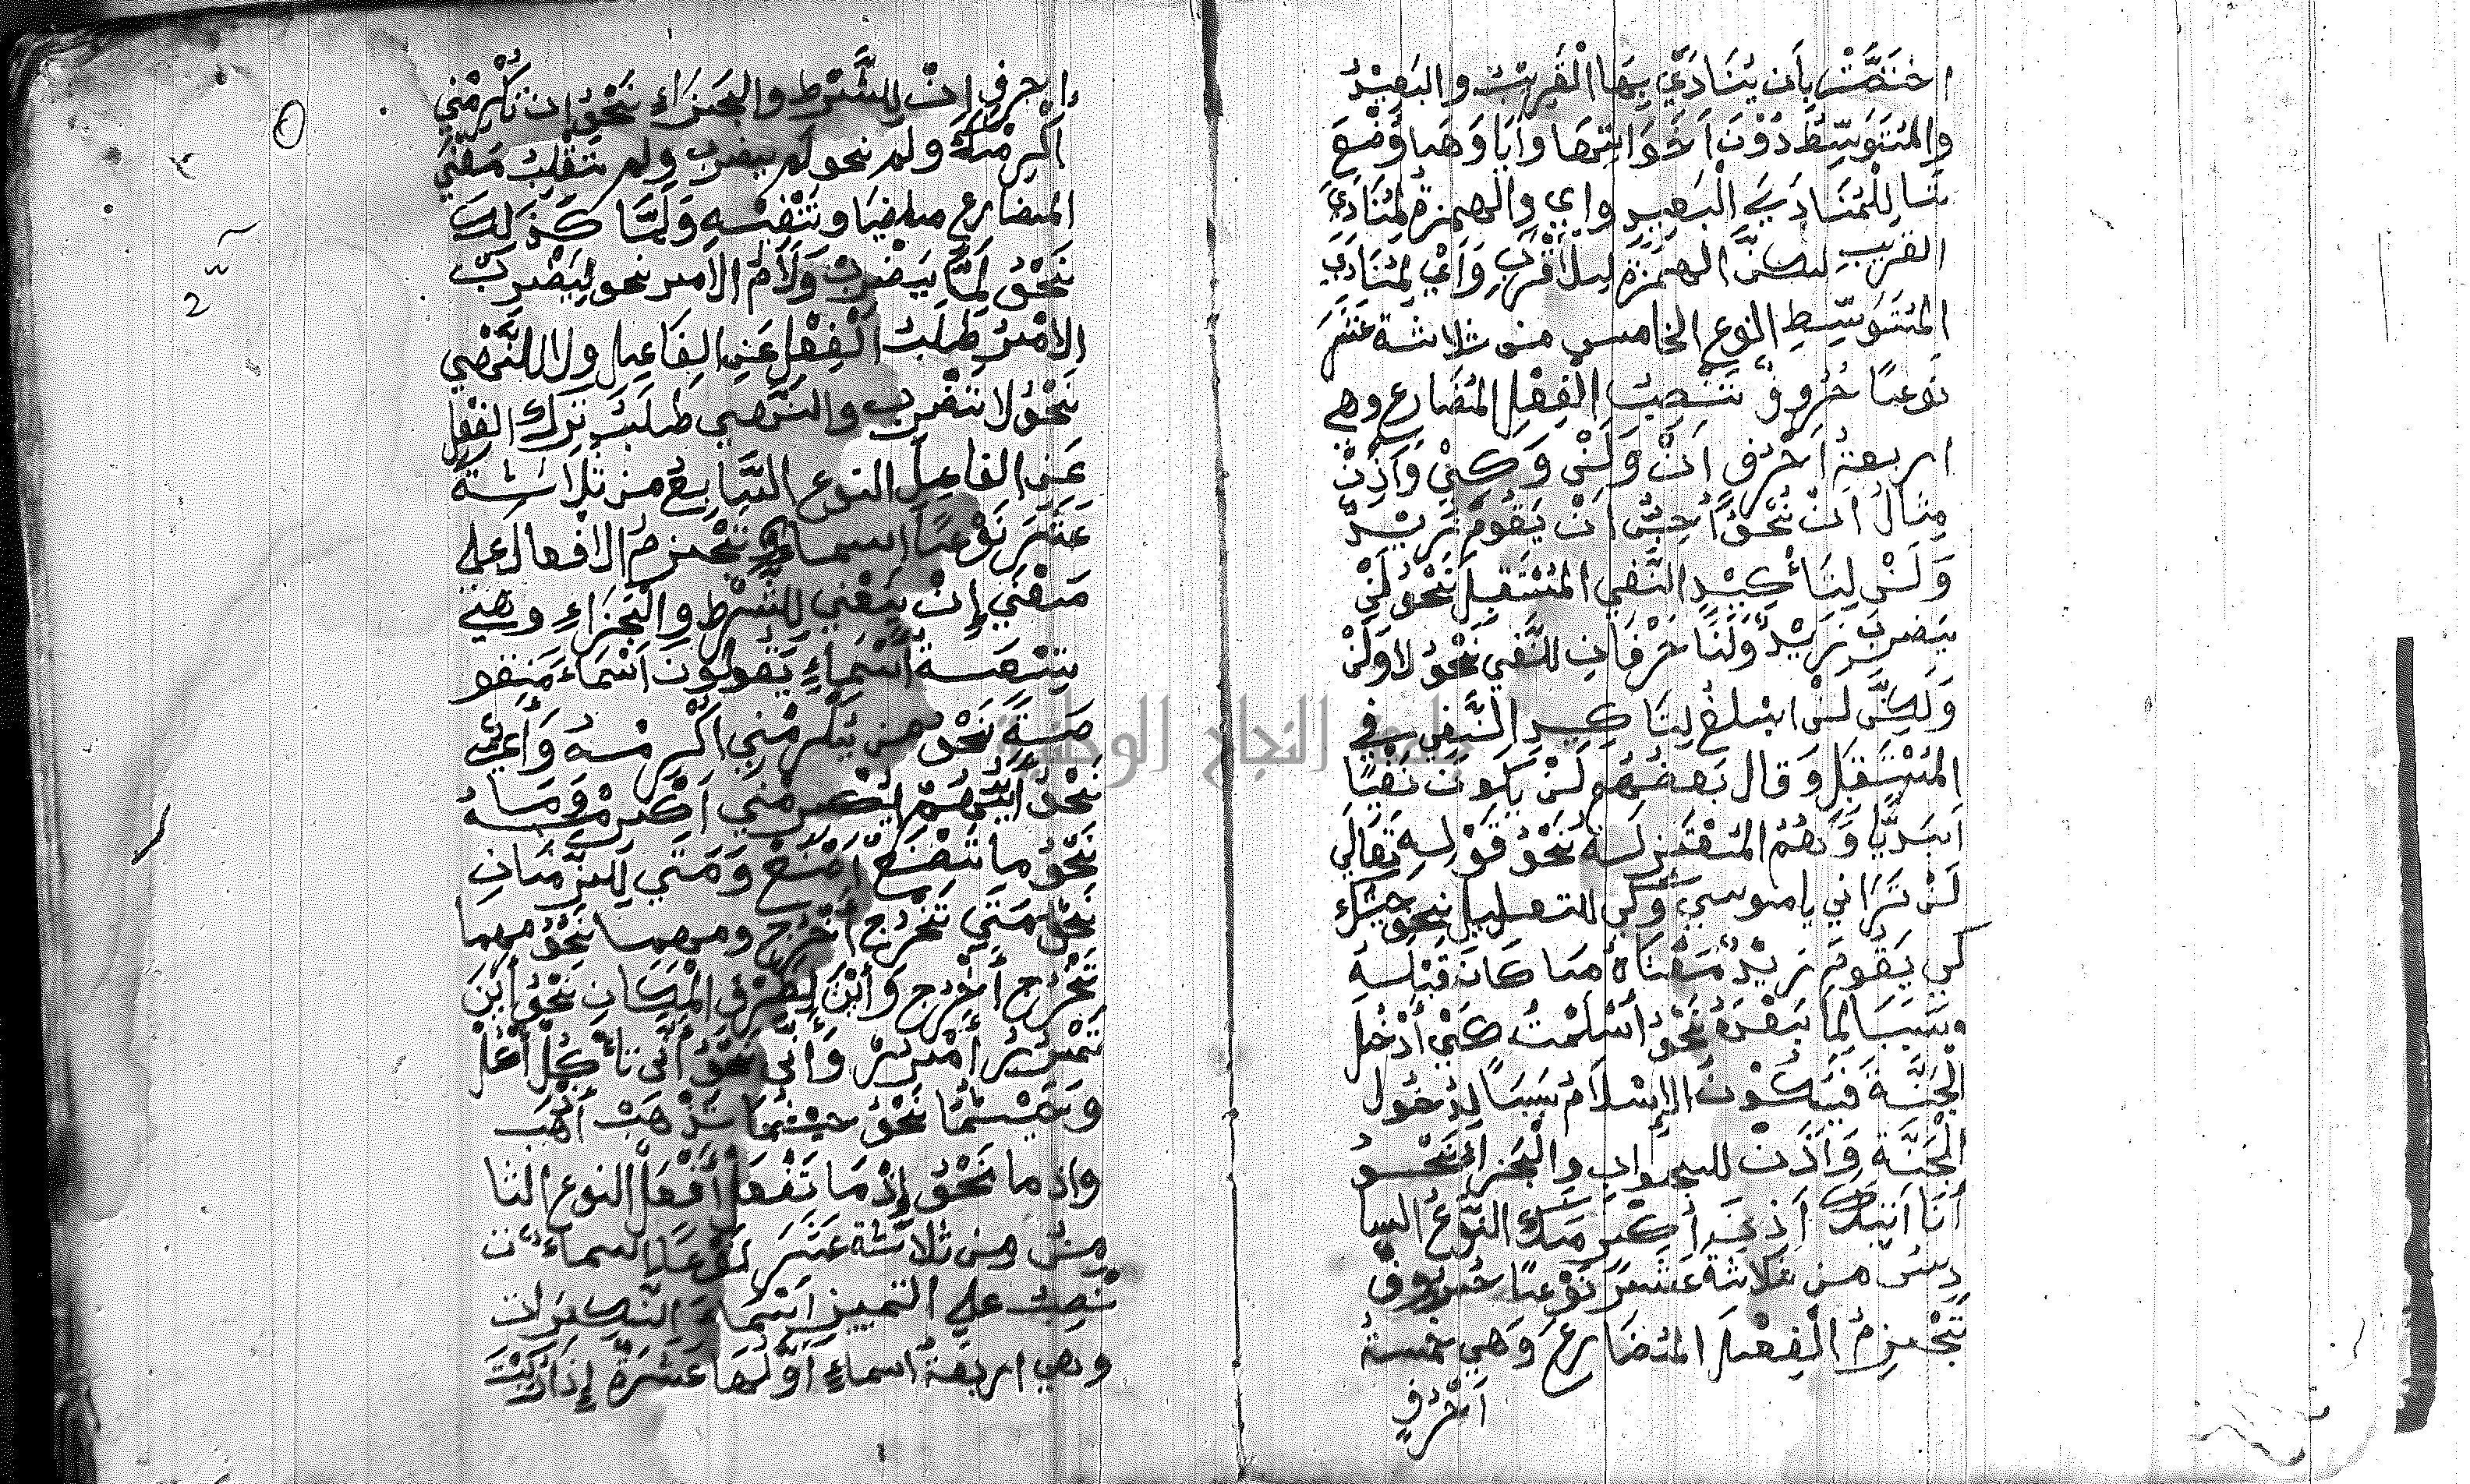 اختصّت بأن ينادي بها القريب والبعيد
والمتوسّط دون اخواتها وأيا وهيا وضع
تا للمنادي البعيد واي والهمزة لمنادي
القريب لكنّ الهمزة للاقرب وأي لمنادي
المتوسّط النوع الخامس من ثلاثة عشر
نوعا حروف تنصب الفعل المضارع وهي
اربعة احرف ان ولن وكي واذن
مثال ان نحو احبّ ان يقوم زيد
ولن لتأكيد النفي المستقبل نحو لن
يضرب زيد ولنا حرفان للنفي نحو لا ولن
ولكنّ لن ابلغ لتاكيد النّفي في
المستقبل وقال بعضهم لن يكون نفيا
ابديّا وهم المعتزلة نحو قوله تعالي
لن تراني يا موسي وكي للتعليل نحو جئتك
كي يقوم زيد معناه ما كان قبله
سببا لما بعده نحو أسلمت كي أدخل
الجنّة فيكون الإسلام سببا لدخول
الجنّة وأذن للجواب والجزاء نحو
أنا اتيك اذن أكرمك النّوع السا
دس من ثلاثة عشر نوعا حروف
تجزم الفعل المضارع وهي خمسة
احرف
احرف ان للشّرط والجزاء نحو ان تكرمني
اكرمتك ولم نحو لم يضرب ولم تقلب معني
المضارع ماضيا وتنفيه ولمّا كذلك
نحو لمّا يضرب ولام الامر نحو ليضرب
الامر طلب الفعل عن الفاعل ولا للنّهي
نحو لا تضرب والنّهي طلب ترك الفعل
عن الفاعل النوع السّابع من ثلاثة
عشر نوعا اسماء تجزم الافعال علي
معني إن يعني للشّرط والجزاء وهي
تسعة أسماء يقولون اسماء منقو
صة نحو من يكرمني اكرمه وأيّ
نحو ايّهم يكرمني اكرمه وما
نحو ما تصنع أصنع ومتي للزّمان
نحو متي تخرج أخرج ومهما نحو مهما
تخرج أخرج وأين لظرف المكان نحو أين
تمرر أمرر وأنّي نحو أنّي تأكل أكل
وحيثما نحو حيثما تذهب أذهب
واذما نحو إذما تفعل أفعل النوع الثا
من من ثلاثة عشر نوعا اسماء ت
نصب علي التمييز أسماء النّكرات
وهي اربعة أسماء أوّلها عشرة إذا ركّبت